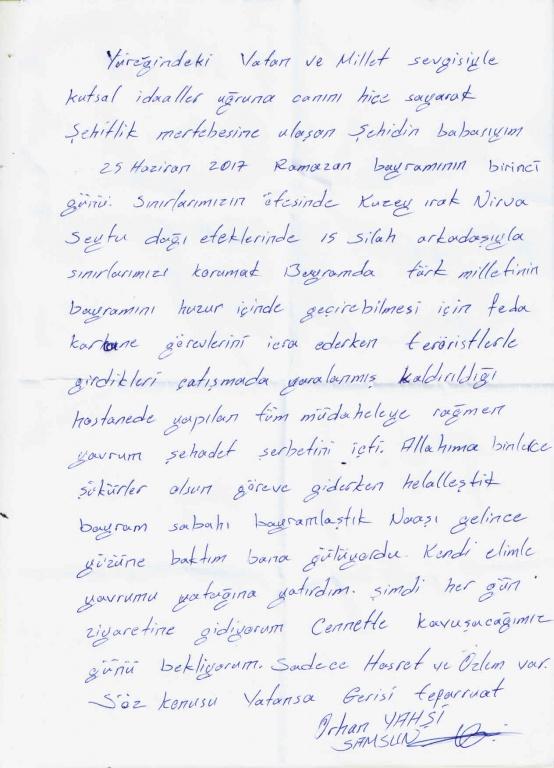 Yüreğindeki Vatan ve Millet sevgisiyle
kutsal idaaller uğruna canını hiçe sayarak
Şehitlik mertebesine ulaşan Şehidin babarıyım
25 Haziran 2017 Ramazan bayramının birinci
günü. Sınırlarımızın ötesinde Kuzey ırak Nirva
Seytu dağı eteklerinde 15 silah arkadaşıyla
sınırlarımızı korumak Bayramda türk milletinin
bayramını huzur içinde geçirebilmesi için feda
karhane görevlerini icra ederken teröristlerle
girdikleri çatışmada yaralanmış kaldırıldığı
hastanede yapılan tüm müdaheleye rağmen
yavrum şehadet şerbetini içti. Allahıma binlece
şükürler olsun göreve giderken helalleştik
bayram sabahı bayramlaştık Naaşı gelince
yüzüne baktım bana gülüyordu. Kendi elimle
yavrumu yatağına yatırdım. şimdi her gün
ziyaretine gidiyorum Cennette kavuşucağımız
günü bekliyorum. Sadece Hasret ve Özlem var.
Söz konusu Vatansa Gerisi teparruat
Orhan YAHŞİ
SAMSUN